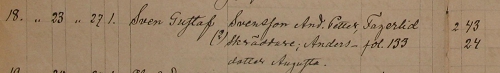 18. " 23 " 27 1. Sven Gustaf Svensson And. Petter, Fagerlid 2 43
(2) Skräddare; Anders- fol. 133 24
dotter Augusta.